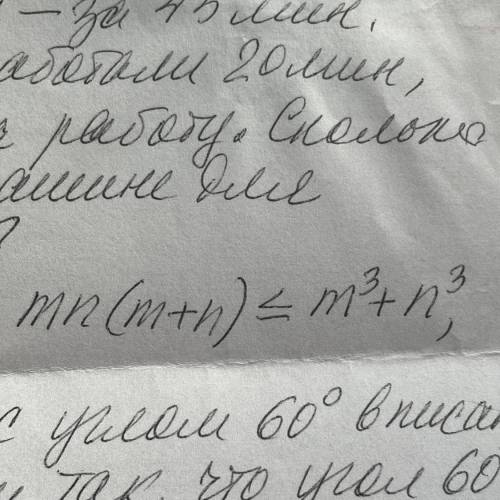 — за 45 мин.
работали 20 мин,
работу. Сколько
машине для
?
mn(m+n) ≤ m³+n³,
с углом 60° вписан
так, что угол 60